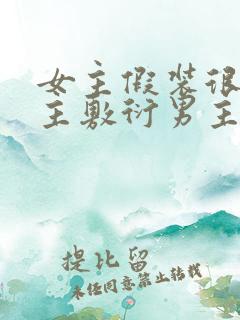 女主假装很
主敷衍男主
提比留
未经同意禁止转载